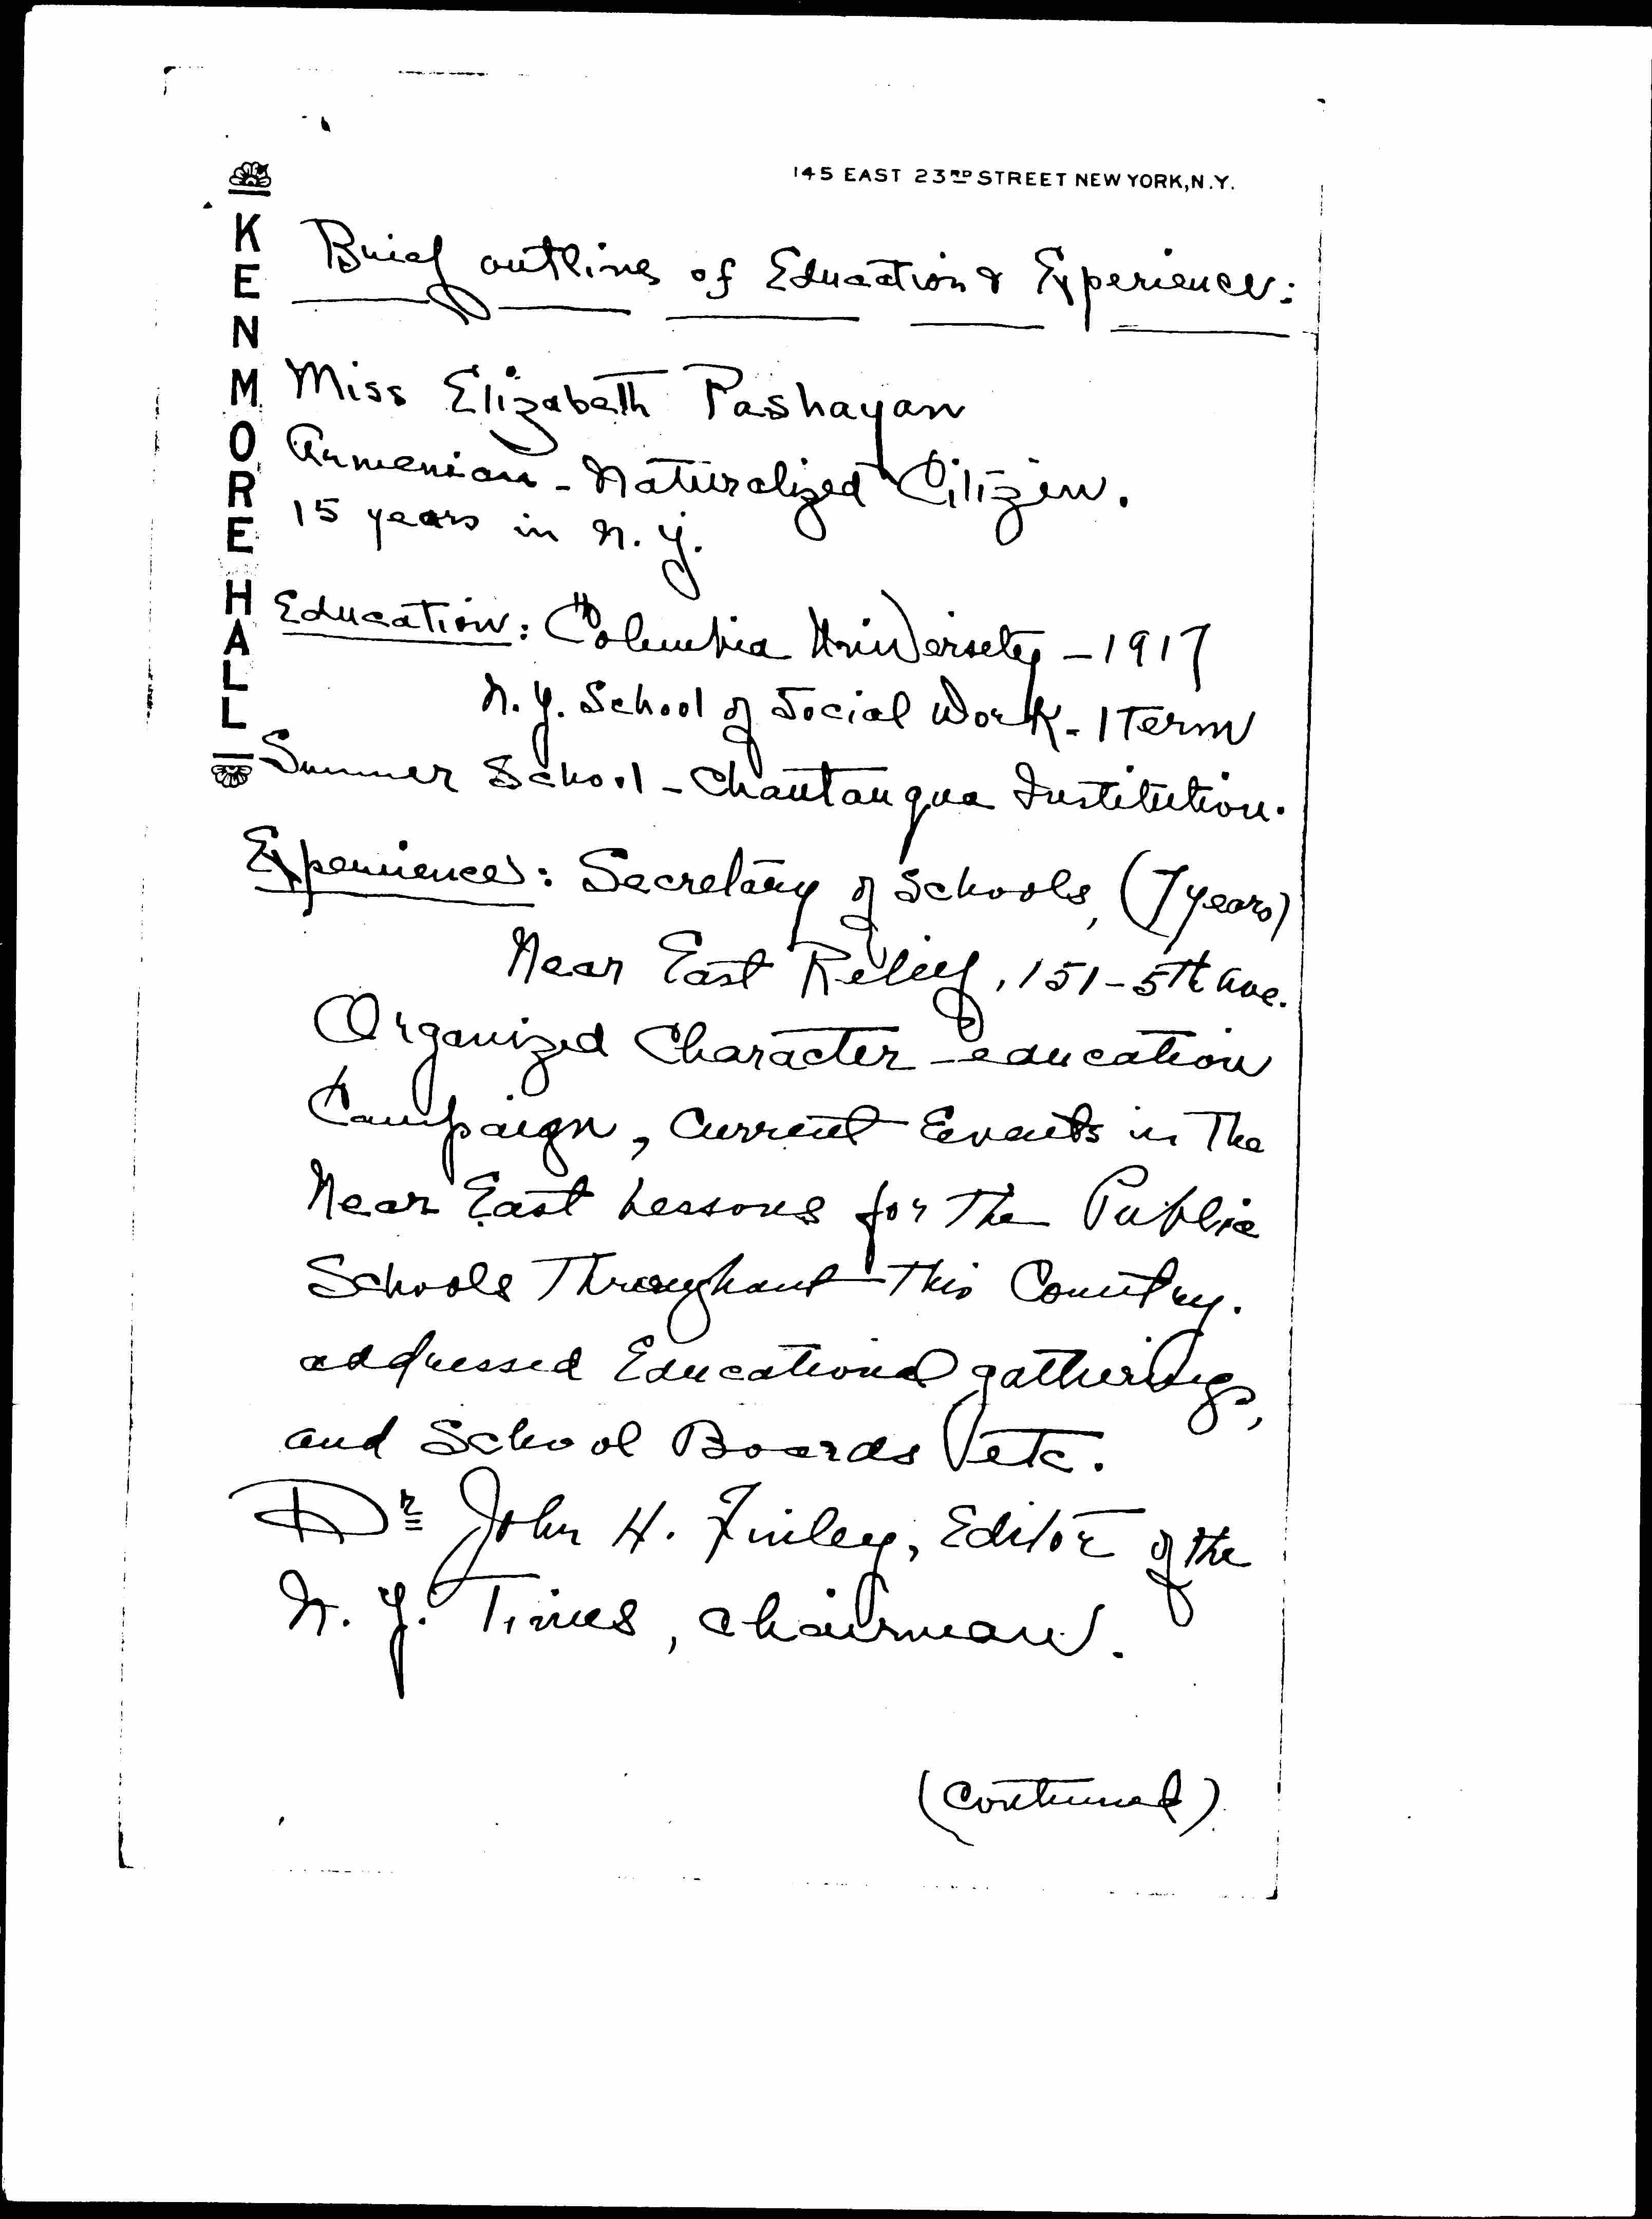 145 EAST 23RD STREET NEW YORK, N.Y.
KENMORE HALL
Brief outline of Education & Experience:
Miss Elizabeth Pashayan
Armenian - Naturalized Citizen.
15 years in N. Y.
Education: Columbia University - 1917
N. Y. School of Social Work - 1 Term
Summer School - Chautauqua Institution.
Experience: Secretary of Schools, (7 years)
Near East Relief, 151 - 5th Ave.
Organized Character - education
Campaign, Current Events in The
Near East Lessons for The Public
Schools Throughout This Country.
addressed Educational gatherings,
and School Boards etc.
Dr John H. Finley, Editor of the
N. Y. Times, Chairman.
(Continued)